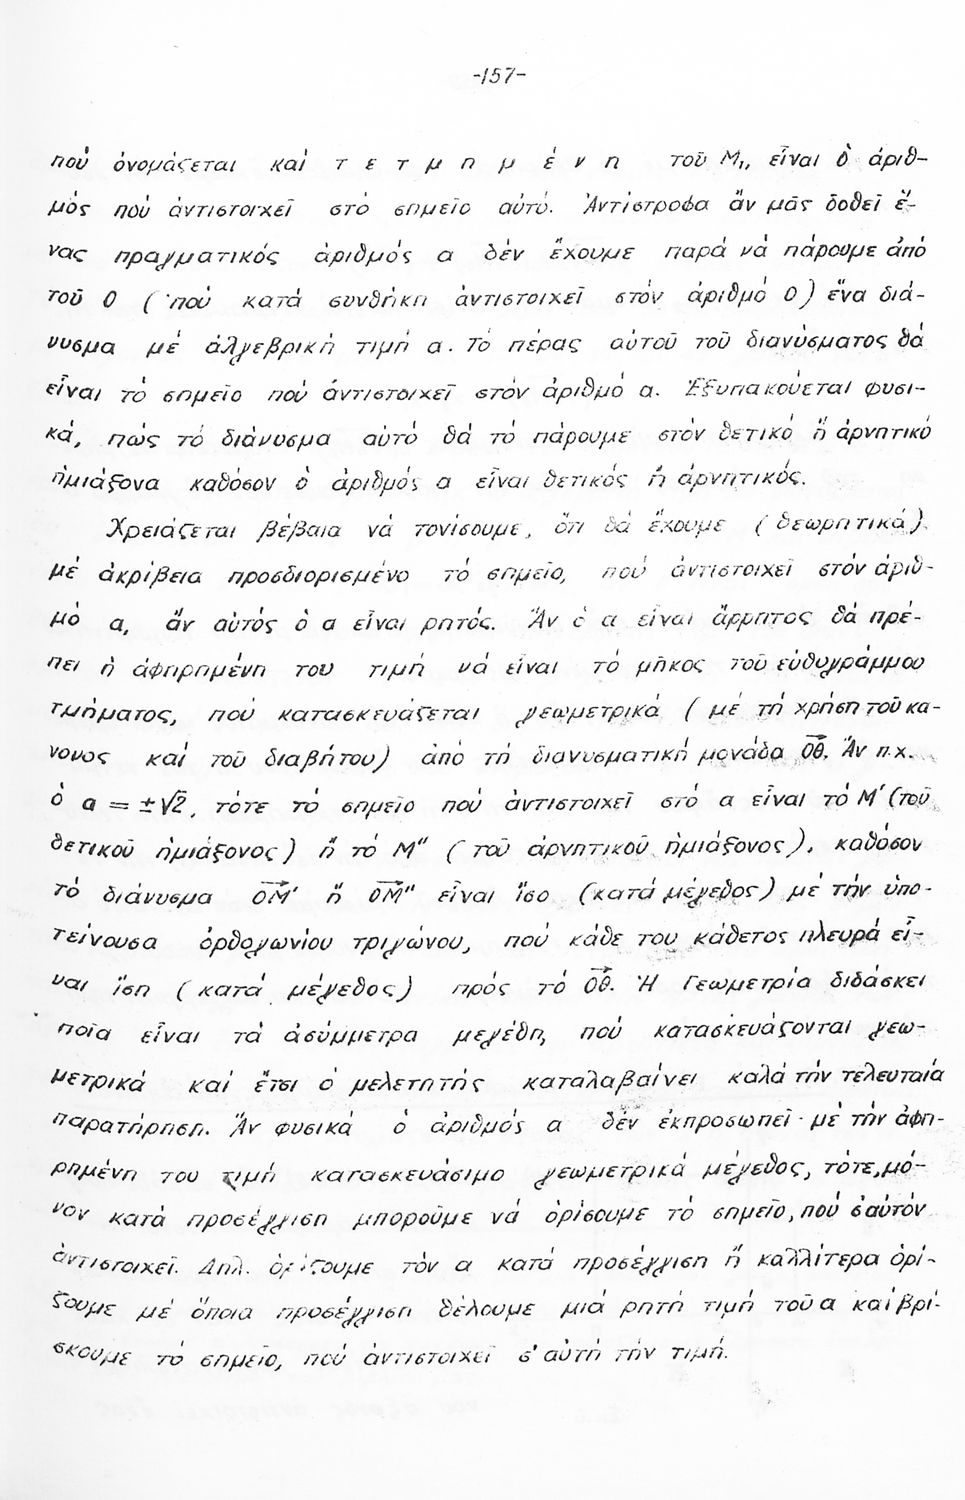 -157-
πού ὀνομάζεται καί τ ε τ μ η μ έ ν η τοῦ Μ₁, εἶναι ὁ ἀριθ-
μός πού ἀντιστοιχεῖ στό σημεῖο αὐτό. Ἀντίστροφα ἄν μᾶς δοθεῖ ἕ-
νας πραγματικός ἀριθμός α δέν ἔχουμε παρά νά πάρουμε ἀπό
τοῦ Ο (πού κατά συνθήκη ἀντιστοιχεῖ στόν ἀριθμό Ο) ἕνα διά-
νυσμα μέ ἀλγεβρική τιμή α. Τό πέρας αὐτοῦ τοῦ διανύσματος θά
εἶναι τό σημεῖο πού ἀντιστοιχεῖ στόν ἀριθμό α. Ἐξυπακούεται φυσι-
κά, πώς τό διάνυσμα αὐτό θά τό πάρουμε στόν θετικό ἤ ἀρνητικό
ἡμιάξονα καθόσον ὁ ἀριθμός α εἶναι θετικός ἤ ἀρνητικός.
Χρειάζεται βέβαια νά τονίσουμε, ὅτι θά ἔχουμε (θεωρητικά)
μέ ἀκρίβεια προσδιορισμένο τό σημεῖο, πού ἀντιστοιχεῖ στόν ἀριθ-
μό α, ἄν αὐτός ὁ α εἶναι ρητός. Ἄν ὁ α εἶναι ἄρρητος θά πρέ-
πει ἡ ἀφηρημένη του τιμή νά εἶναι τό μῆκος τοῦ εὐθυγράμμου
τμήματος, πού κατασκευάζεται γεωμετρικά (μέ τή χρήση τοῦ κα-
νονος καί τοῦ διαβήτου) ἀπό τή διανυσματική μονάδα Οθ⃗. Ἄν π.χ.
ὁ α = ±√2, τότε τό σημεῖο πού ἀντιστοιχεῖ στό α εἶναι τό Μ′ (τοῦ
θετικοῦ ἡμιάξονος) ἤ τό Μ″ (τοῦ ἀρνητικοῦ ἡμιάξονος), καθόσον
τό διάνυσμα ΟΜ⃗′ ἤ ΟΜ⃗″ εἶναι ἴσο (κατά μέγεθος) μέ τήν ὑπο-
τείνουσα ὀρθογωνίου τριγώνου, πού κάθε του κάθετος πλευρά εἶ-
ναι ἴση (κατά μέγεθος) πρός τό Οθ⃗. Ἡ Γεωμετρία διδάσκει
ποῖα εἶναι τά ἀσύμμετρα μεγέθη, πού κατασκευάζονται γεω-
μετρικά καί ἔτσι ὁ μελετητής καταλαβαίνει καλά τήν τελευταία
παρατήρηση. Ἄν φυσικά ὁ ἀριθμός α δέν ἐκπροσωπεῖ μέ τήν ἀφη-
ρημένη του τιμή κατασκευάσιμο γεωμετρικά μέγεθος, τότε, μό-
νον κατά προσέγγιση μποροῦμε νά ὁρίσουμε τό σημεῖο, πού σ'αὐτόν
ἀντιστοιχεῖ. Δηλ. ὁρίζουμε τόν α κατά προσέγγιση ἤ καλλίτερα ὁρί-
ζουμε μέ ὅποια προσέγγιση θέλουμε μιά ρητή τιμή τοῦ α καί βρί-
σκουμε τό σημεῖο, πού ἀντιστοιχεῖ σ' αὐτή τήν τιμή.